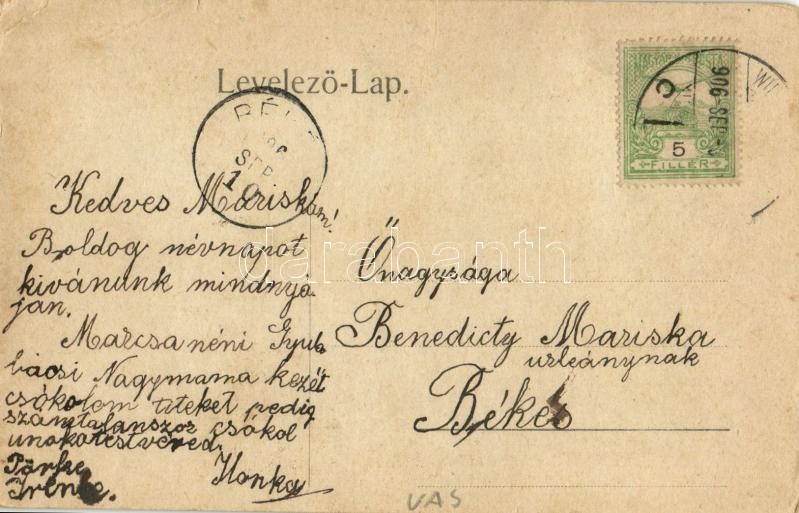 Levelezö-Lap.
5
FILLÉR
906 SEP
SEP
10
Kedves Mariskám!
Boldog névnapot
kivánunk mindnyá-
jan.
Marcsa néni Gyula
bácsi Nagymama kezét
csókolom titeket pedig
számtalanszor csókol
unokatestvéred.
Ilonka
Őnagysága
Benedicty Mariska
urleánynak
Békés
VAS
darabanth